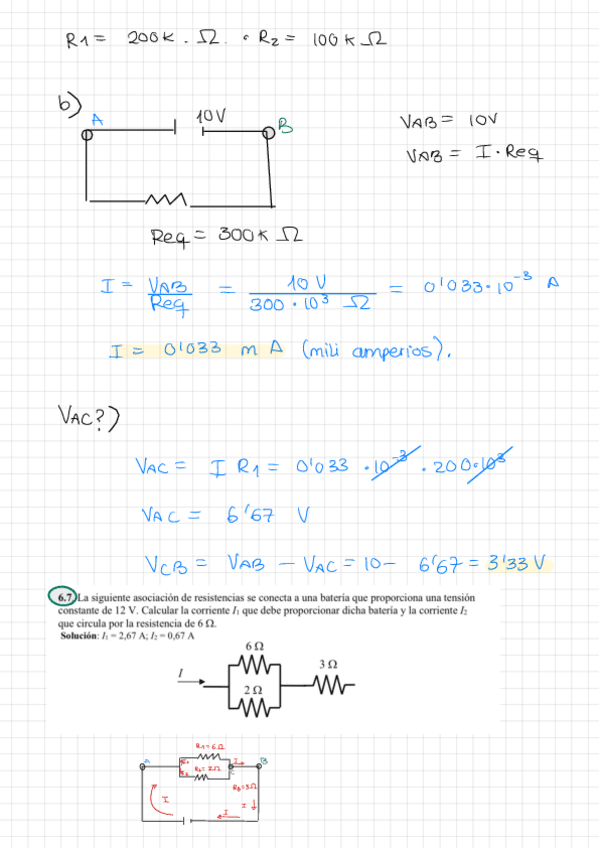 R1 = 200k . Ω. • R2 = 100k Ω
b)
A 10V B
VAB = 10V
VAB = I · Req
Req = 300k Ω
I = VAB / Req = 10 V / 300 · 10³ Ω = 0'033·10⁻³ A
I = 0'033 m A (mili amperios).
VAC?)
VAC = I R1 = 0'033 · 10⁻³ · 200·10³
VAC = 6'67 V
VCB = VAB − VAC = 10 − 6'67 = 3'33 V
6.7 La siguiente asociación de resistencias se conecta a una batería que proporciona una tensión
constante de 12 V. Calcular la corriente I1 que debe proporcionar dicha batería y la corriente I2
que circula por la resistencia de 6 Ω.
Solución: I1 = 2,67 A; I2 = 0,67 A
6 Ω
I
2 Ω
3 Ω
R1=6Ω
A I B
R2=2Ω
C
R3=3Ω
I
I